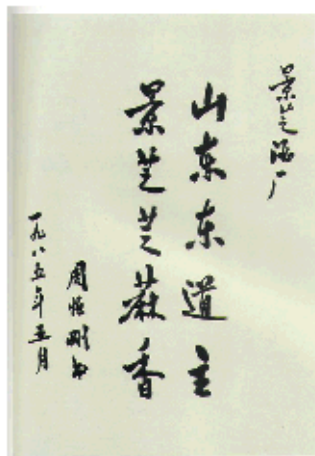 景芝酒厂
山东东道主
景芝芝麻香
周恒刚书
一九八五年五月